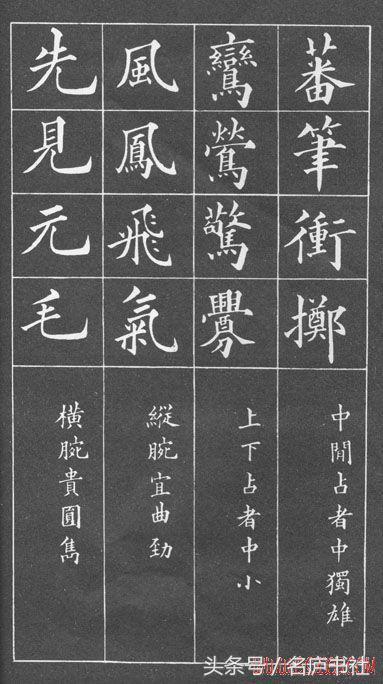 蕃筆衝擲
中閒占者中獨雄
鸞鶯驚釁
上下占者中小
風鳳飛氣
縱腕宜曲勁
先見元毛
橫腕貴圓雋
头条号/名庐书社